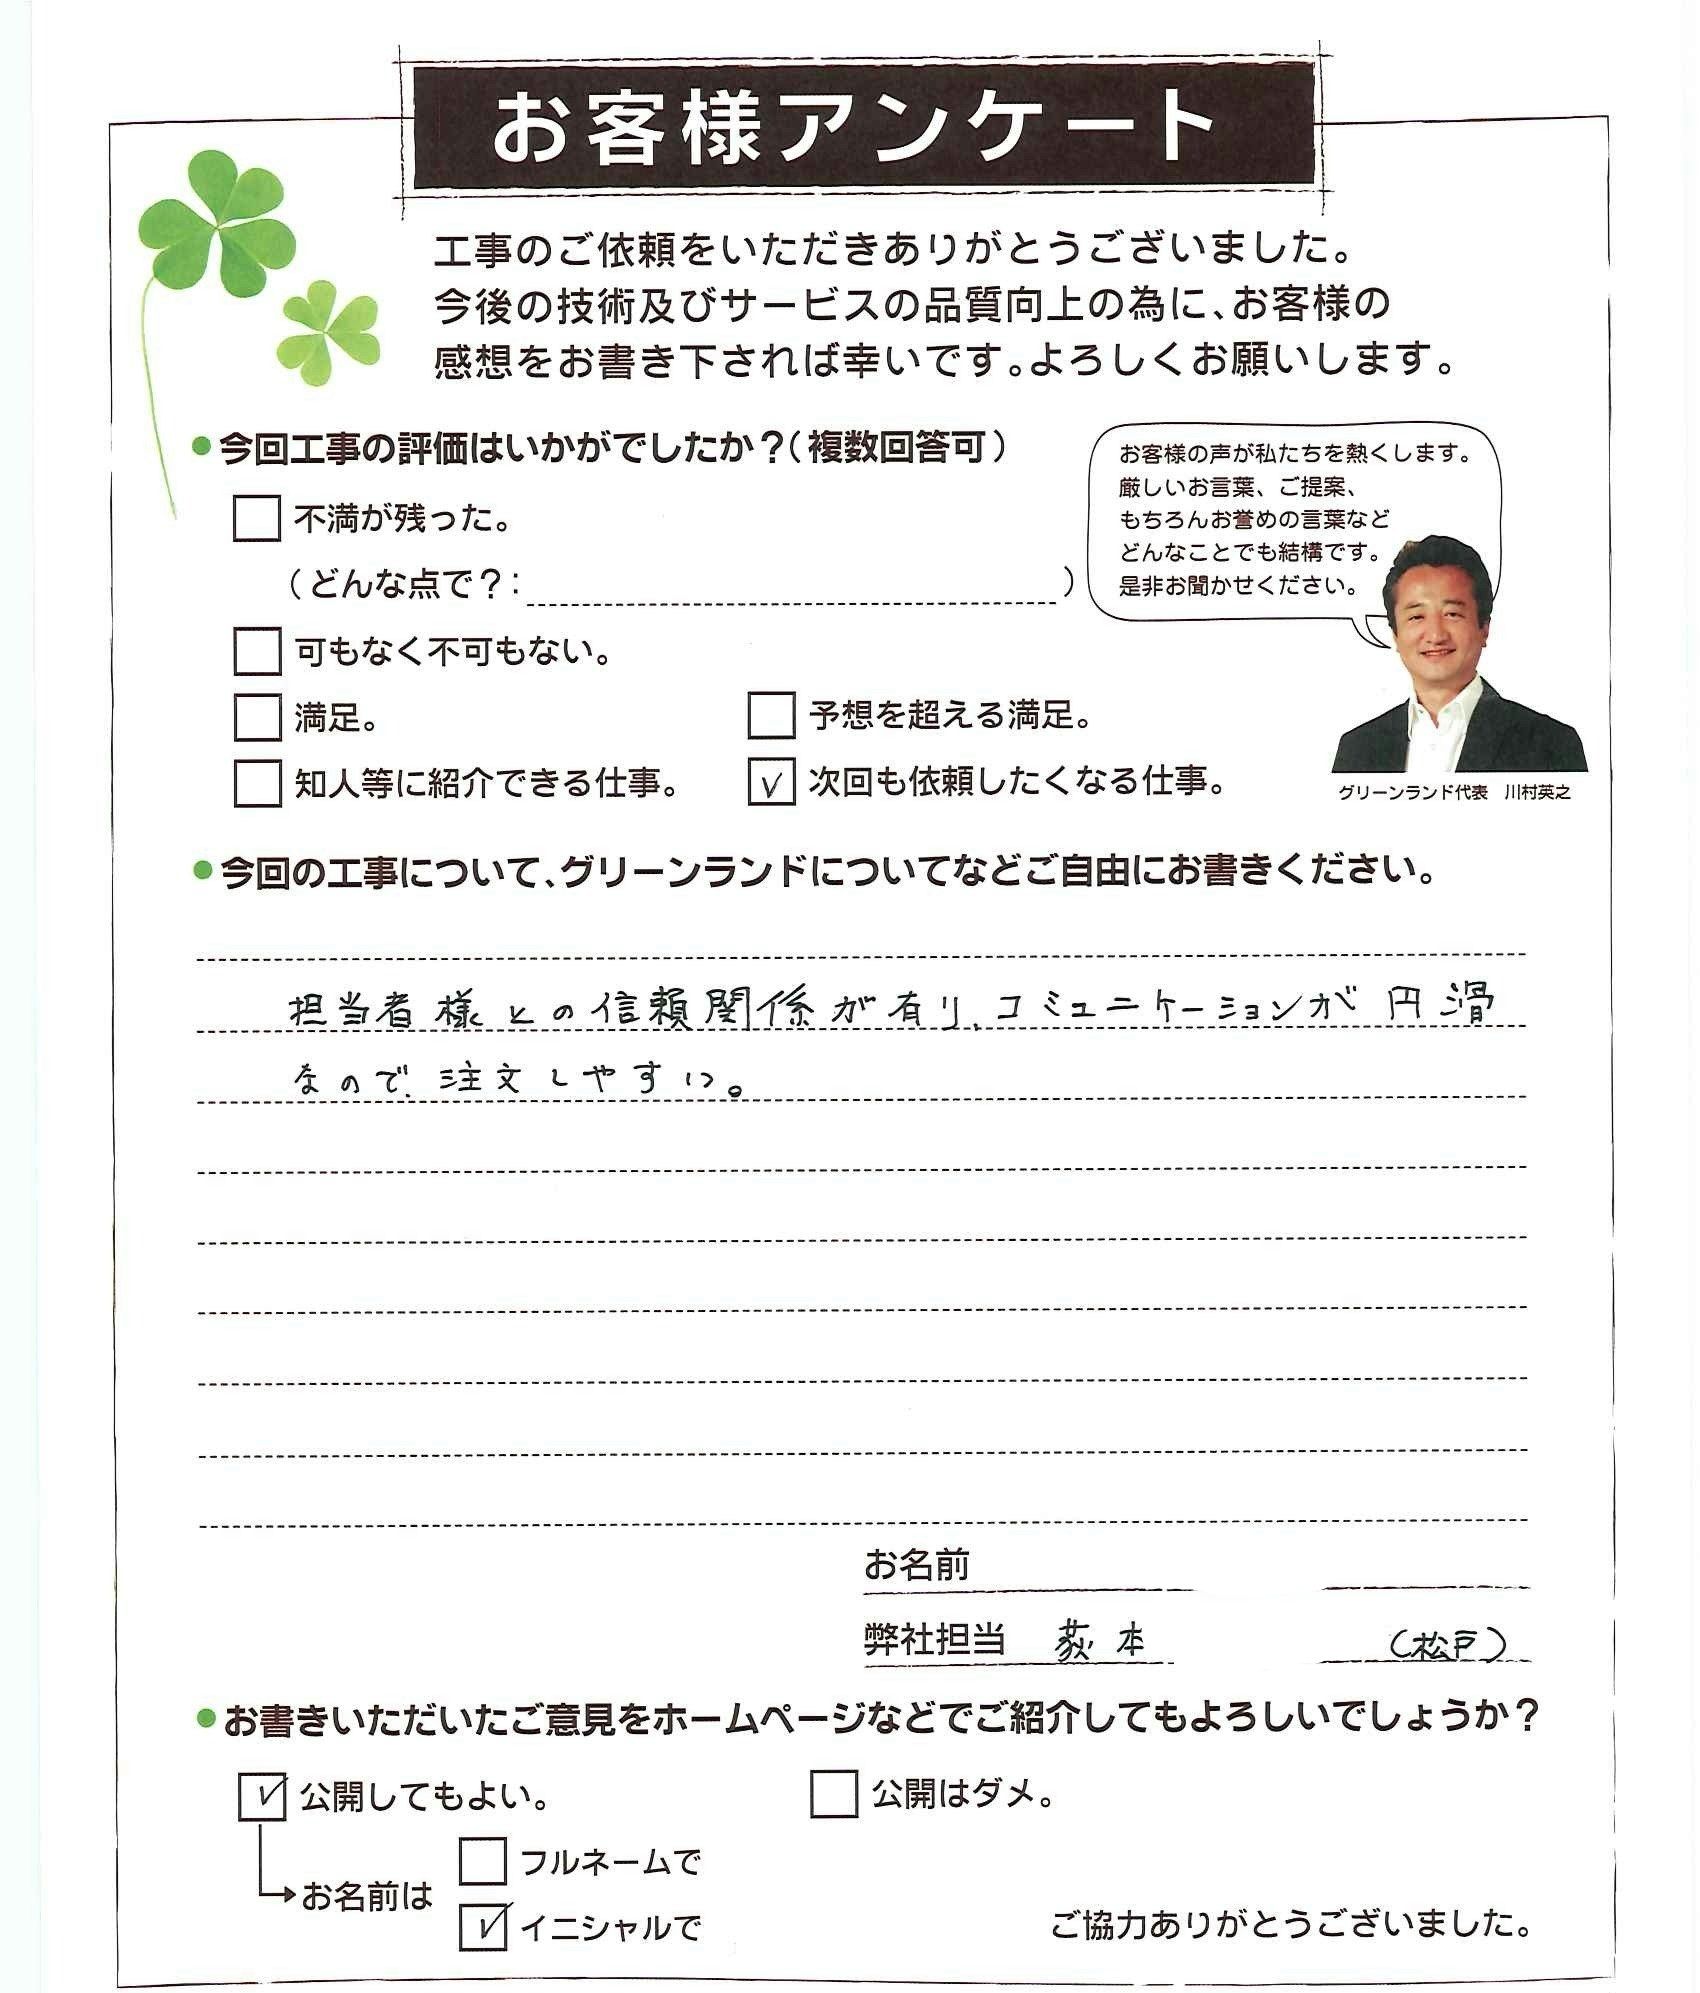 お客様アンケート
工事のご依頼をいただきありがとうございました。
今後の技術及びサービスの品質向上の為に、お客様の
感想をお書き下されば幸いです。よろしくお願いします。
●今回工事の評価はいかがでしたか？（複数回答可）
不満が残った。
（どんな点で？：　）
可もなく不可もない。
満足。
予想を超える満足。
知人等に紹介できる仕事。
✓次回も依頼したくなる仕事。
お客様の声が私たちを熱くします。
厳しいお言葉、ご提案、
もちろんお誉めの言葉など
どんなことでも結構です。
是非お聞かせください。
グリーンランド代表　川村英之
●今回の工事について、グリーンランドについてなどご自由にお書きください。
担当者様との信頼関係が有り、コミュニケーションが円滑
なので、注文しやすい。
お名前
弊社担当　荻本　（松戸）
●お書きいただいたご意見をホームページなどでご紹介してもよろしいでしょうか？
✓公開してもよい。
公開はダメ。
お名前は
フルネームで
✓イニシャルで
ご協力ありがとうございました。